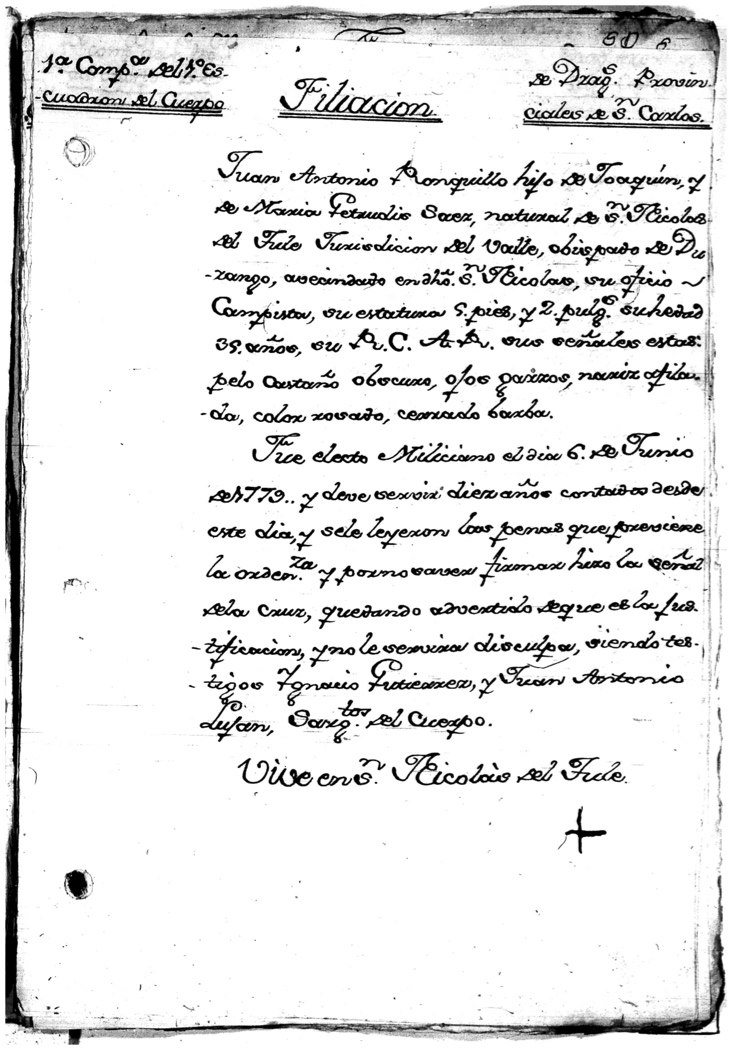 1.ª Comp.ª del 1.º Es-
-cuadron del Cuerpo
Filiacion
de Drag.s Provin-
ciales de S.n Carlos.
Juan Antonio Ronquillo hijo de Joaquin, y
de Maria Getrudis Saez, natural de S.n Nicolas
del Tule Jurisdicion del Valle, obispado de Du
-rango, avecindado en dho. S.n Nicolas, su oficio ~
Campista, su estatura 5. pies, y 2. pulg.s su hedad
35. años, su R. C. A. R. sus señales estas:
pelo castaño obscuro, ojos garzos, nariz afila-
-da, color rosado, cerrado barba.
Fue electo Miliciano el dia 6. de Junio
de 1779.. y deve servir diez años contados desde
este dia, y sele leyeron las penas que previene
la orden.za y por no saver firmar hizo la señal
dela Cruz, quedando advertido de que es la jus-
-tificacion, y no le servira disculpa, siendo tes-
-tigos Ygnacio Gutierrez, y Juan Antonio
Lujan, Sarg.tos del Cuerpo.
Vive en S.n Nicolàs del Tule.